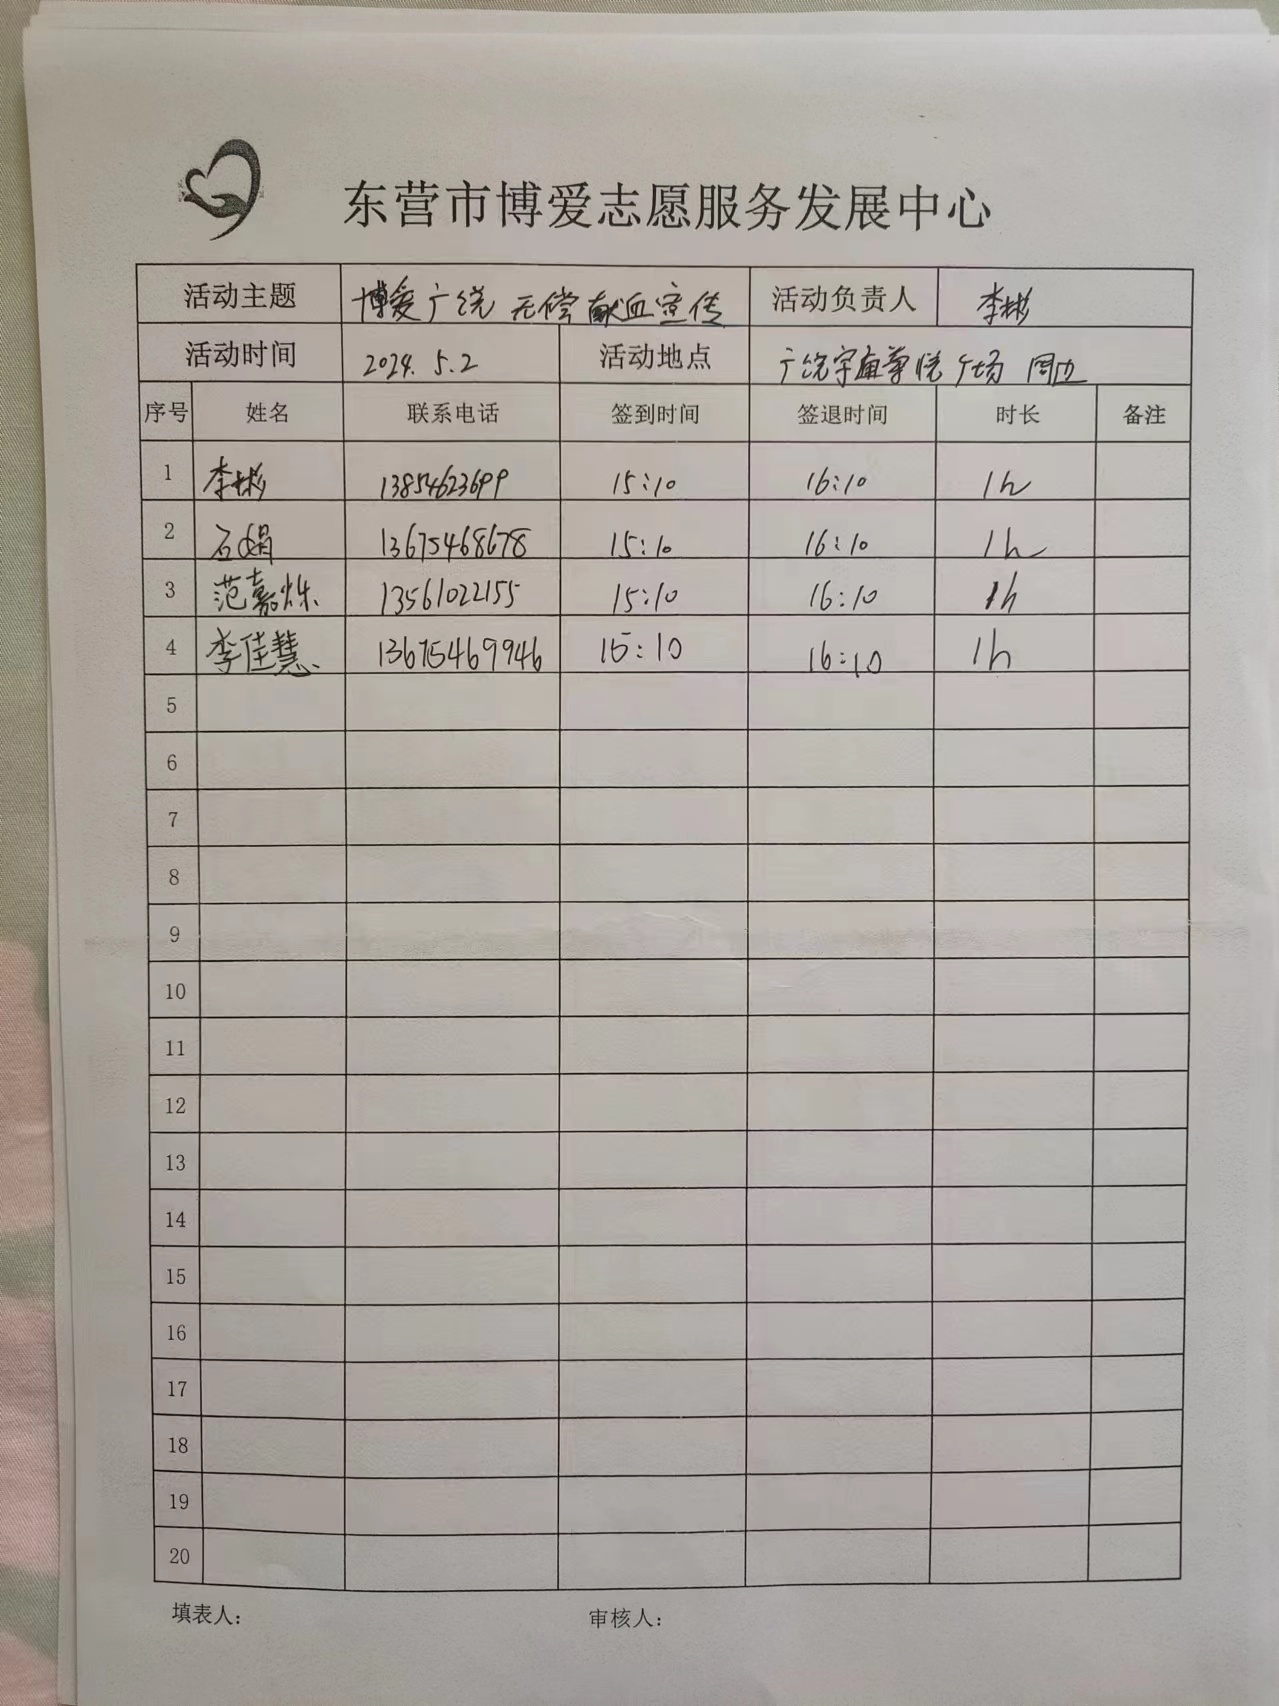 东营市博爱志愿服务发展中心
活动主题 博爱广饶 无偿献血宣传 活动负责人 李彬
活动时间 2024.5.2 活动地点 广饶宇宙尊悦广场 周边
序号 姓名 联系电话 签到时间 签退时间 时长 备注
1 李彬 13854623699 15:10 16:10 1h
2 石娟 13675468678 15:10 16:10 1h
3 范嘉烁 13561022155 15:10 16:10 1h
4 李佳慧 13675469946 15:10 16:10 1h
5
6
7
8
9
10
11
12
13
14
15
16
17
18
19
20
填表人: 审核人: